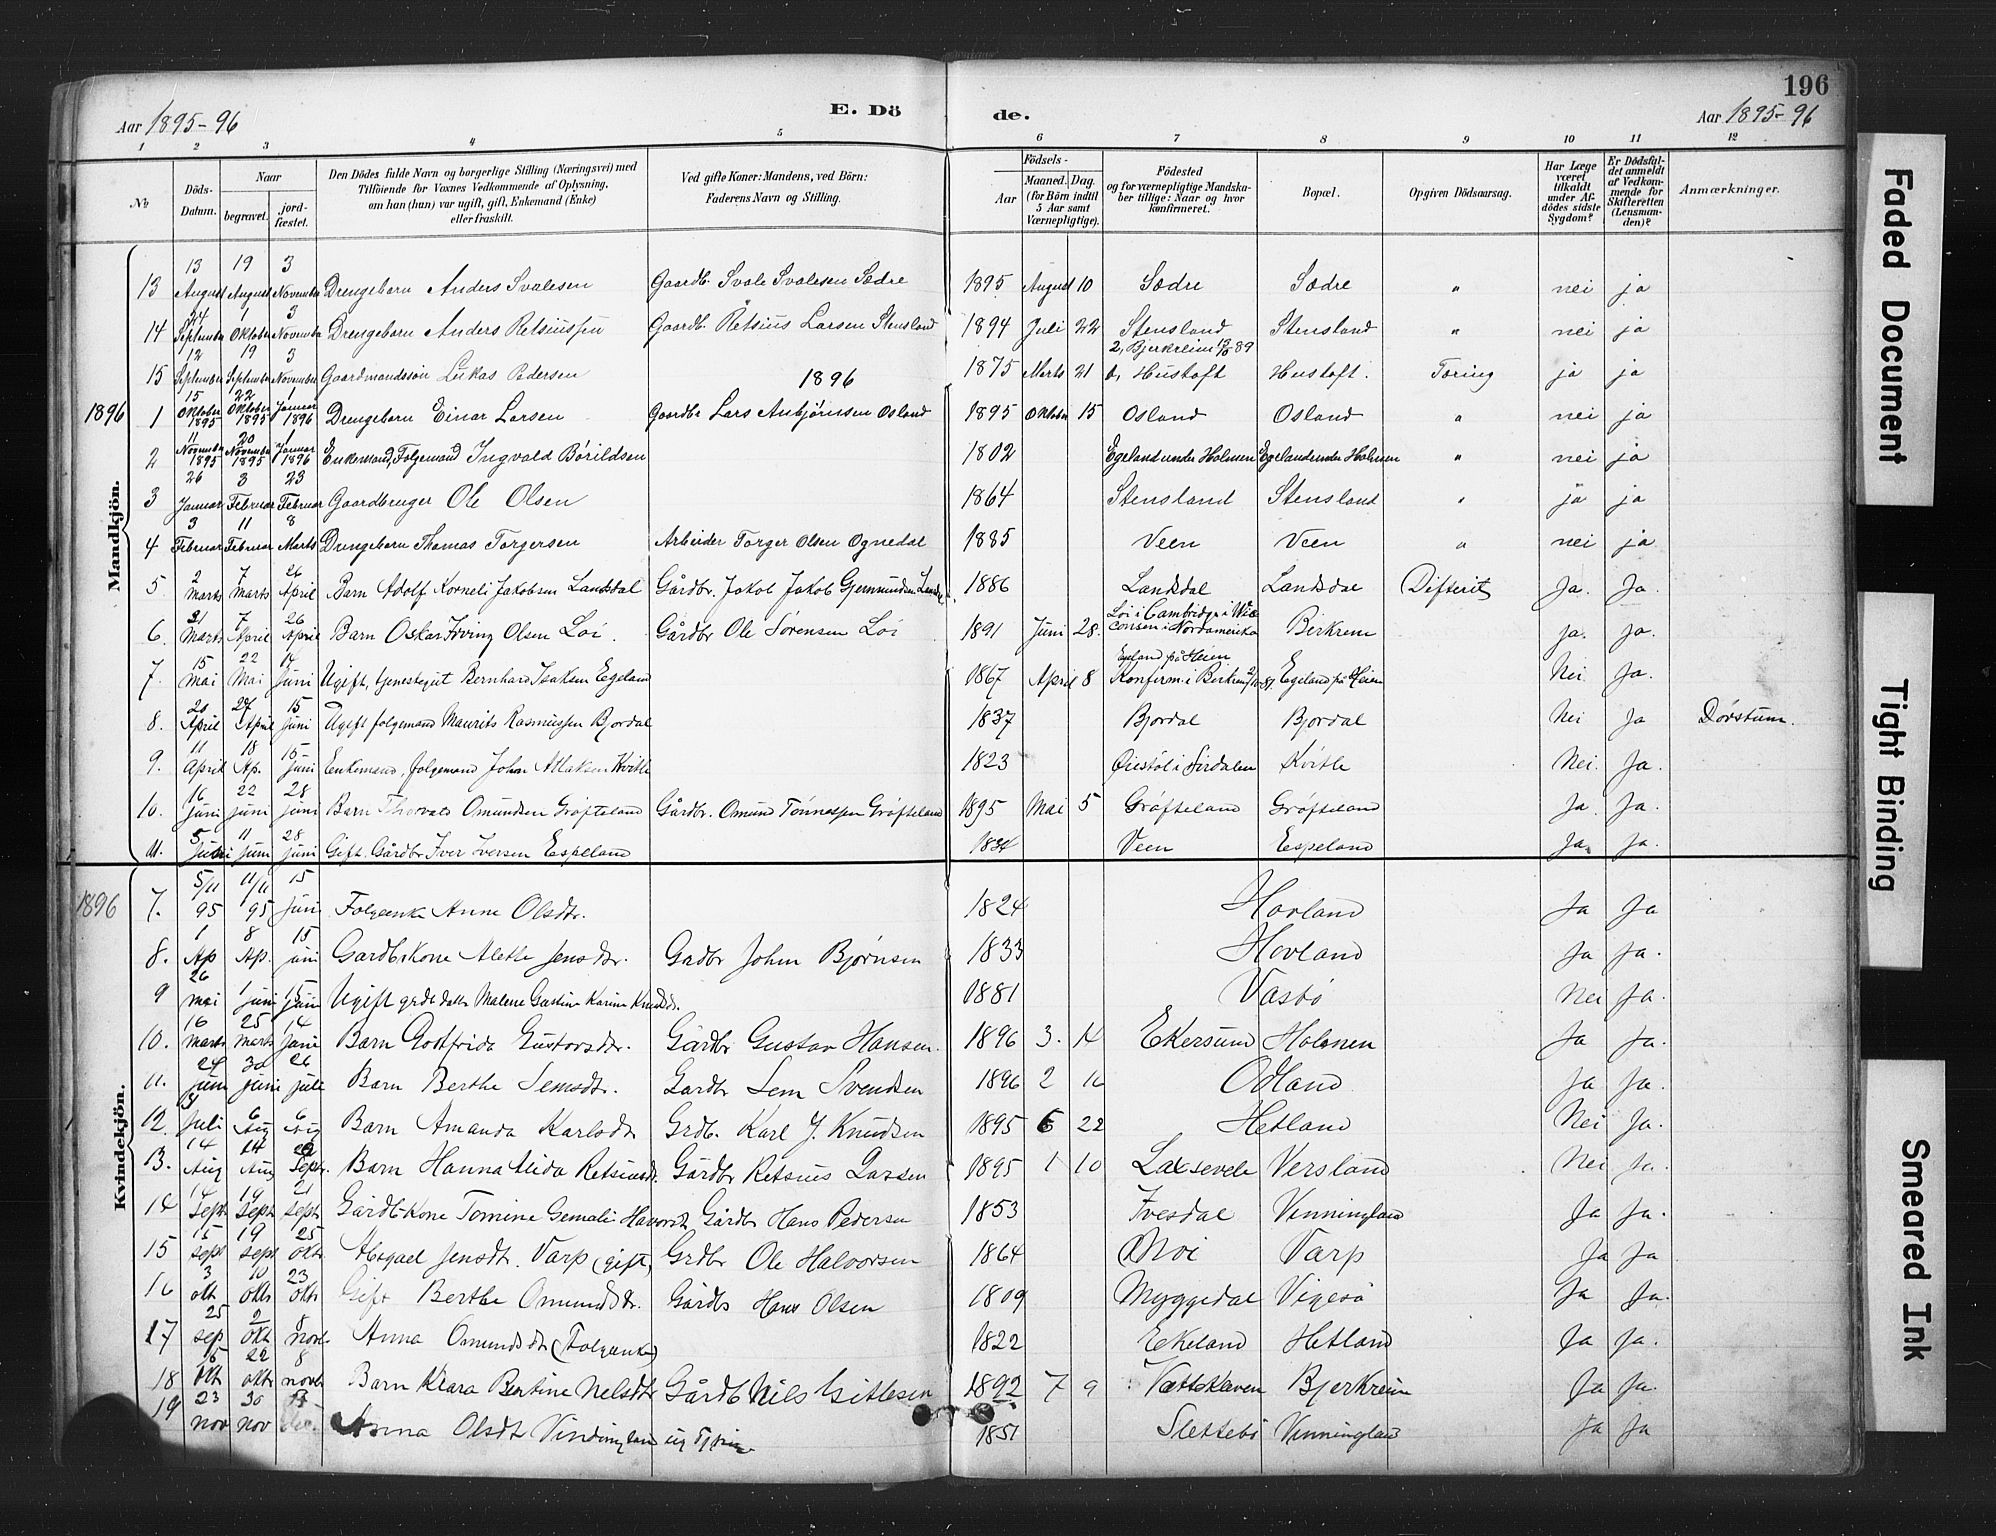 196
Aar 1895-96 E. Dö de. Aar 1895-96
1 2 3 4 5 6 7 8 9 10 11 12
№ Döds-Datum. Naar begravet. jord-fæstet. Den Dödes fulde Navn og borgerlige Stilling (Næringsvei) med Tilföiende for Voxnes Vedkommende af Oplysning, om han (hun) var ugift, gift, Enkemand (Enke) eller fraskilt. Ved gifte Koner: Mandens, ved Börn: Faderens Navn og Stilling. Födsels- Aar Maaned. Dag. (for Börn indtil 5 Aar samt Værnepligtige). Födested og for værnepligtige Mandska-ber tillige: Naar og hvor konfirmeret. Bopæl. Opgiven Dödsaarsag. Har Læge været tilkaldt under Af-dödes sidste Sygdom? Er Dödsfal-det anmeldt af Vedkom-mende for Skifteretten (Lensman-den)? Anmærkninger.
Mandkjön.
13 13 August 19 August 3 November Drengebarn Anders Svalesen Gaardb. Svale Svalesen Sædre 1895 August 10 Sædre Sædre " nei ja
14 24 September 1 Oktober 3 November Drengebarn Anders Retsiussen Gaardb. Retsius Larsen Stensland 1894 Juli 22 Stensland Stensland " nei ja
15 12 September 19 September 3 November Gaardmandssön Lukas Pedersen 1875 Marts 21 Hustoft Hustoft. Tæring ja ja
1896
1896 1 15 Oktober 1895 22 Oktober 1895 1 Januar 1896 Drengebarn Einar Larsen Gaardbr Lars Anbjørnsen Osland 1895 Oktober 15 Osland Osland " nei ja
2 11 November 1895 20 November 1895 1 Januar 1896 Enkemand, Folgemand Ingvald Børildsen 1802 Egeland under Holmen Egeland under Holmen " nei ja
3 26 Januar 3 Februar 23 Februar Gaardbruger Ole Olsen 1864 Stensland Stensland " ja ja
4 3 Februar 11 Februar 8 Marts Drengebarn Thomas Torgersen Arbeider Torger Olsen Ognedal 1885 Veen Veen " nei ja
5 2 Marts 7 Marts 26 April Barn Adolf Korneli Jakobsen Landsdal Gårdbr. Jakob Jakob 1886 Landsdal Landsdal Difterit Ja. Ja.
6. 31 Marts 7 April 26 April Barn Oskar Irving Olsen Loi. Gårdbr Ole Sørensen Loi 1891 Juni 28. Loi i Cambridge i Wisconsen i Nordamerika Berkrem ja. ja.
7. 15 Mai 22 Mai 14 Juni Ugift, tjenestegut Bernhard Isaksen Egeland 1867 April 8 Egeland på Heien Konfirm. i Berkrem Egeland på Heien Nei Ja.
8. 20 April 27 April 15 Juni Ugift folgemand Maurits Rasmussen Bjordal 1837 Bjordal Bjordal Nei Ja Døvstum.
9. 11 April 18 Ap. 15 Juni Enkemand, folgemand John Kvitle 1823 i Sirdalen Kvitle Nei. Ja.
10. 16 juni 22 juni 28 juni Barn Thorvald Omundsen Grøfteland Gårdbr. Omund Tønnessen Grøfteland 1895 Mai 5 Grøfteland Grøfteland Ja. Ja.
11. 5 juni 11 Juni 28 juni Gift. Gårdbr Iver Iversen Espeland 1834 Veen Espeland Ja. Ja.
Kvindekjön.
1896 7. 5/11 95 11/11 95 15 Juni Folgeenke Anne Olsdtr. 1824 Hovland Ja Ja
8. 1 Ap 8 Ap. 15 juni Gardbrkone Alette Jensdtr. Gadbr John Bjørnsen 1833 Hovland Ja Ja.
9 26 mai 1 juni 15 juni Ugift Malene Karine Knudsdtr. 1881 Vasbø Nei Ja.
10. 16 Marts 25 Marts 14 Juni Barn Gotfrida Gustavsdtr. Gårdbr Gustav Hansen. 1896 3. 14 Ekersund Holmen Ja Ja.
11. 24 juni 30 juni 26 juli Barn Berthe Semsdtr. Gardbr Sem Svendsen 1896 2 16 Odland Ja Ja.
12. Juli 6 Aug 6 Aug Barn Amanda Karlsdtr Grdb. Karl J. Knudsen 1895 6 22 Hetland Nei Ja.
13. 14 Aug 14 Aug Sept. Barn Hanna Alida Retsiusdtr. Gårdbr Retsius Larsen 1895 1 10 Laksevele Versland Nei Ja.
14 14 Sept 19 Sept 21 sept Gårdb.kone Tomine Gårdbr Hans Pedersen 1853 Ivesdal Vinningland Ja Ja.
15 15 sept 19 sept 25 okt Abigael Jensdt. Varp (gift) Grdbr Ole Halvorsen 1864 Moi Varp Ja Ja
16 3 okt 10 okt 23 okt Gift Berthe Omundsdtr. Gårdb Hans Olsen 1809 Myggedal Vigeså Ja Ja.
17 25 sep 2 okt 8 novb Anna Omundsdtr (Folgeenke) 1822 Eikeland Hetland Ja Ja.
18 15 okt 22 oktr 8 novb Barn Klara Bertine Nelsdtr Gårdb Nils Gitlesen 1892 7 9 Bjerkreim Ja Ja.
19 23 nov 30 nov Anna Olsdt 1851 Slettebø Vinningland Ja Ja
Faded Document
Tight Binding
Smeared Ink